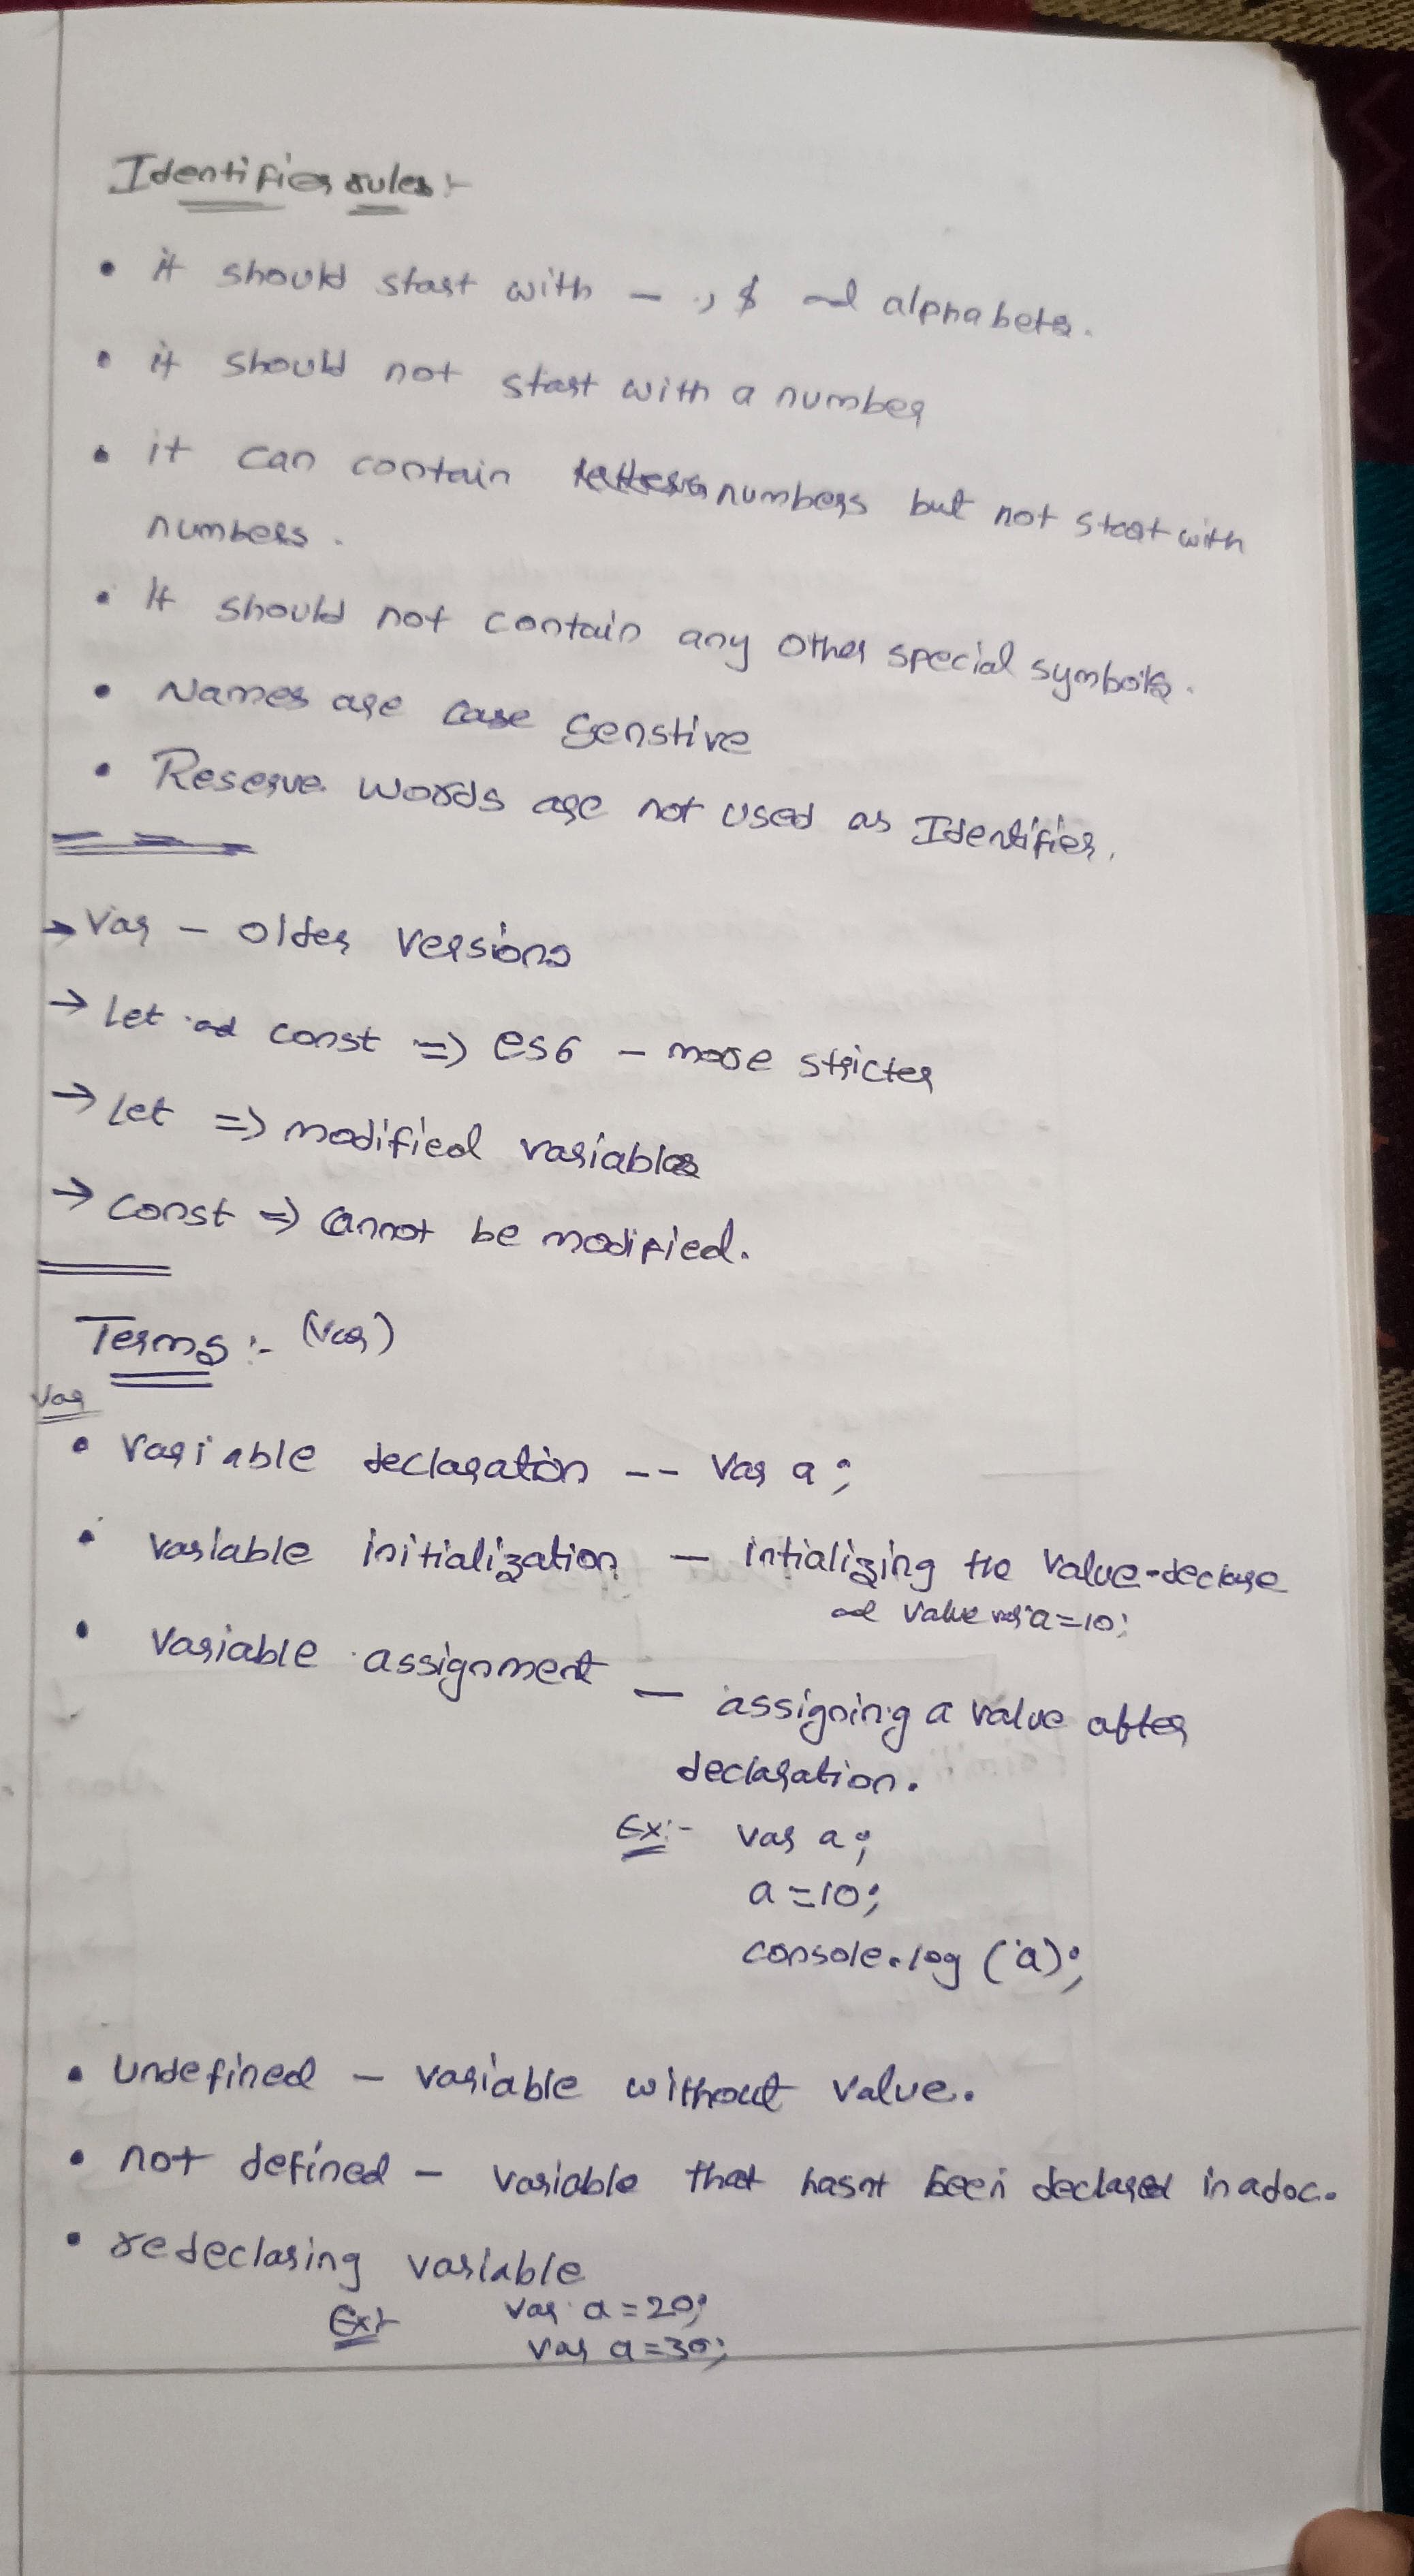 Identifier rules:-
• it should start with _ , $ and alphabets.
• it should not start with a number
• it can contain numbers but not start with
numbers.
• It should not contain any other special symbols.
• Names are case senstive
• Reserve words are not used as Identifier.
→ Var - older versions
→ Let and const => es6 - more stricter
→ Let => modified variables
→ const => cannot be modified.
Terms :- (var)
Var
• variable declaration -- Var a;
• variable initialization - intializing the value-declare
and value var a=10;
• Variable assignment - assigning a value after
declaration.
Ex:- var a;
a=10;
console.log (a);
• undefined - variable without value.
• not defined - variable that hasnt been declared in a doc.
• redeclaring variable
Ex:- var a=20;
var a=30;